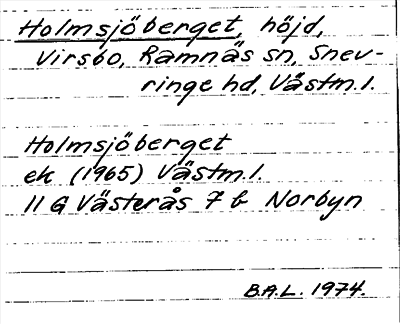 Holmsjöberget, höjd,
Virsbo, Ramnäs sn, Snev-
ringe hd, Västm.l.
Holmsjöberget
ek (1965) Västm.l.
11 G Västerås 7 b Norbyn
B.A.L. 1974.